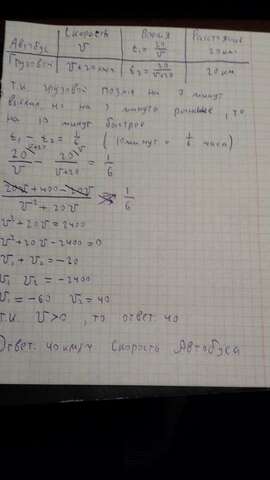 Скорость Время Расстояние
Автобус v t₁ = 20/v 20 км
Грузовой v+20 км/ч t₂ = 20/(v+20) 20 км
Т.к. грузовой позже на 7 минут
выехал, но на 3 минуты раньше, то
на 10 минут быстрее
t₁ - t₂ = 1/6 (10 минут = 1/6 часа)
20/v - 20/(v+20) = 1/6
(20v + 400 - 20v)/(v² + 20v) = 1/6
v² + 20v = 2400
v² + 20v - 2400 = 0
v₁ + v₂ = -20
v₁ v₂ = -2400
v₁ = -60 v₂ = 40
Т.к. v > 0, то ответ 40
Ответ: 40 км/ч Скорость Автобуса